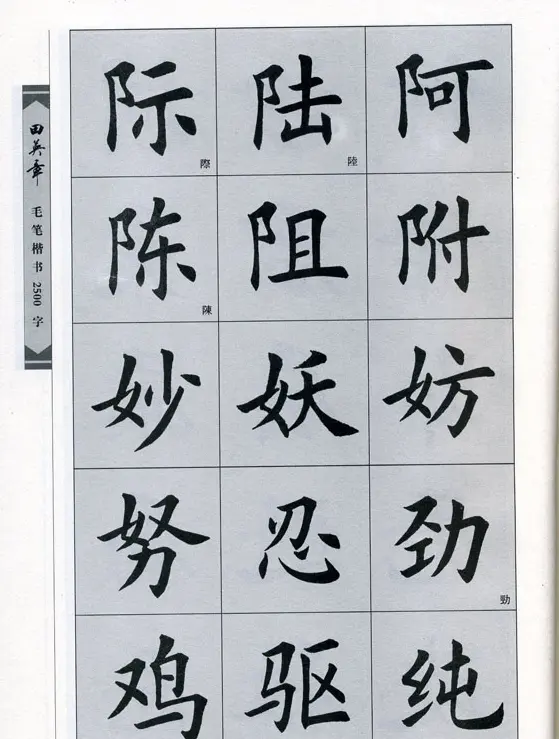 田英章 毛笔楷书2500字
际 陆 阿
際 陸
陈 阻 附
陳
妙 妖 妨
努 忍 劲
勁
鸡 驱 纯